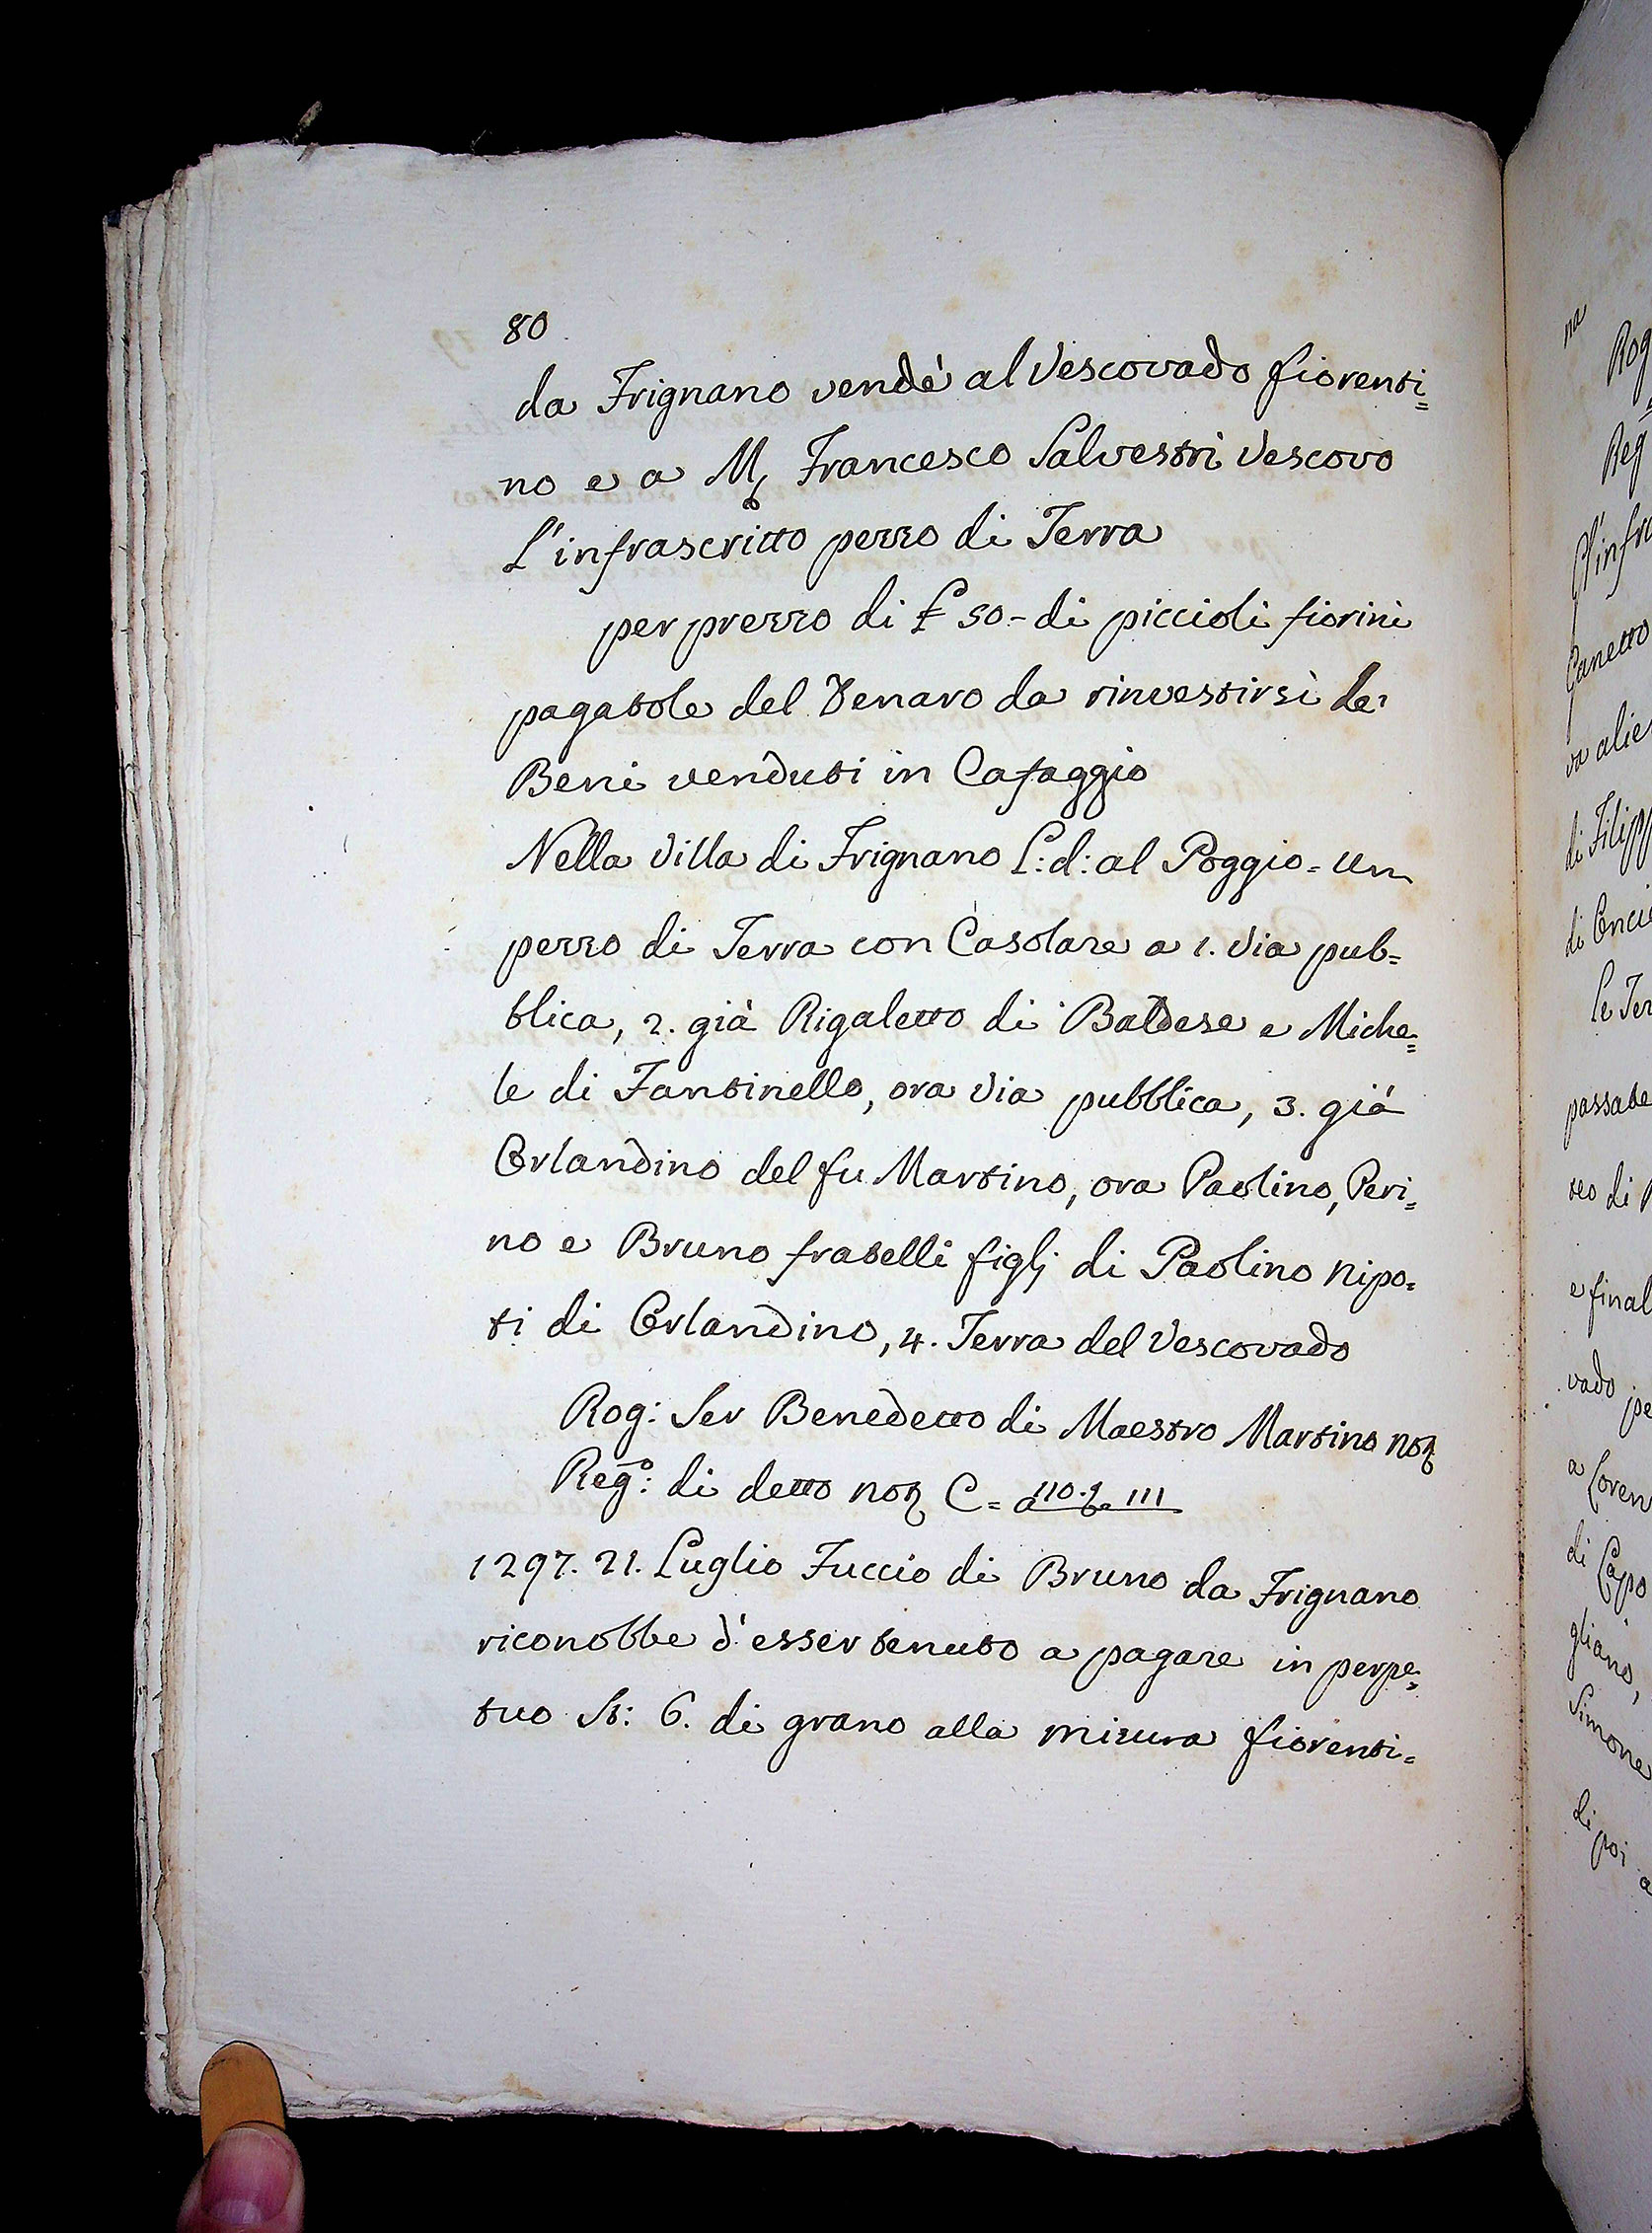 80
da Frignano vendè al Vescovado fiorenti=
no e a M. Francesco Salvestri Vescovo
L'infrascritto pezzo di Terra
per prezzo di £ 50 - di piccioli fiorini
pagatole del Denaro da rinvestirsi de'
Beni venduti in Cafaggio
Nella Villa di Frignano L: d: al Poggio = Un
pezzo di Terra con Casolare a 1. Via pub=
blica, 2. già Rigaletto di Baldese e Miche=
le di Fantinello, ora Via pubblica, 3. già
Orlandino del fu Martino, ora Paolino, Peri=
no e Bruno fratelli figlj di Paolino nipo=
ti di Orlandino, 4. Terra del Vescovado
Rog: Ser Benedetto di Maestro Martino not
Reg.º: di detto not C = a 110. e 111
1297. 21. Luglio Fuccio di Bruno da Frignano
riconobbe d'esser tenuto a pagare in perpe=
tuo St: 6. di grano alla misura fiorenti=
na
Rog
Reg
L'infra
Ganetto
va alie
di Filipp
di Cenci
Le Ter
passate
teo di P
e final
vado pe
a Loren
di Capo
gliano,
Simone
di poi a